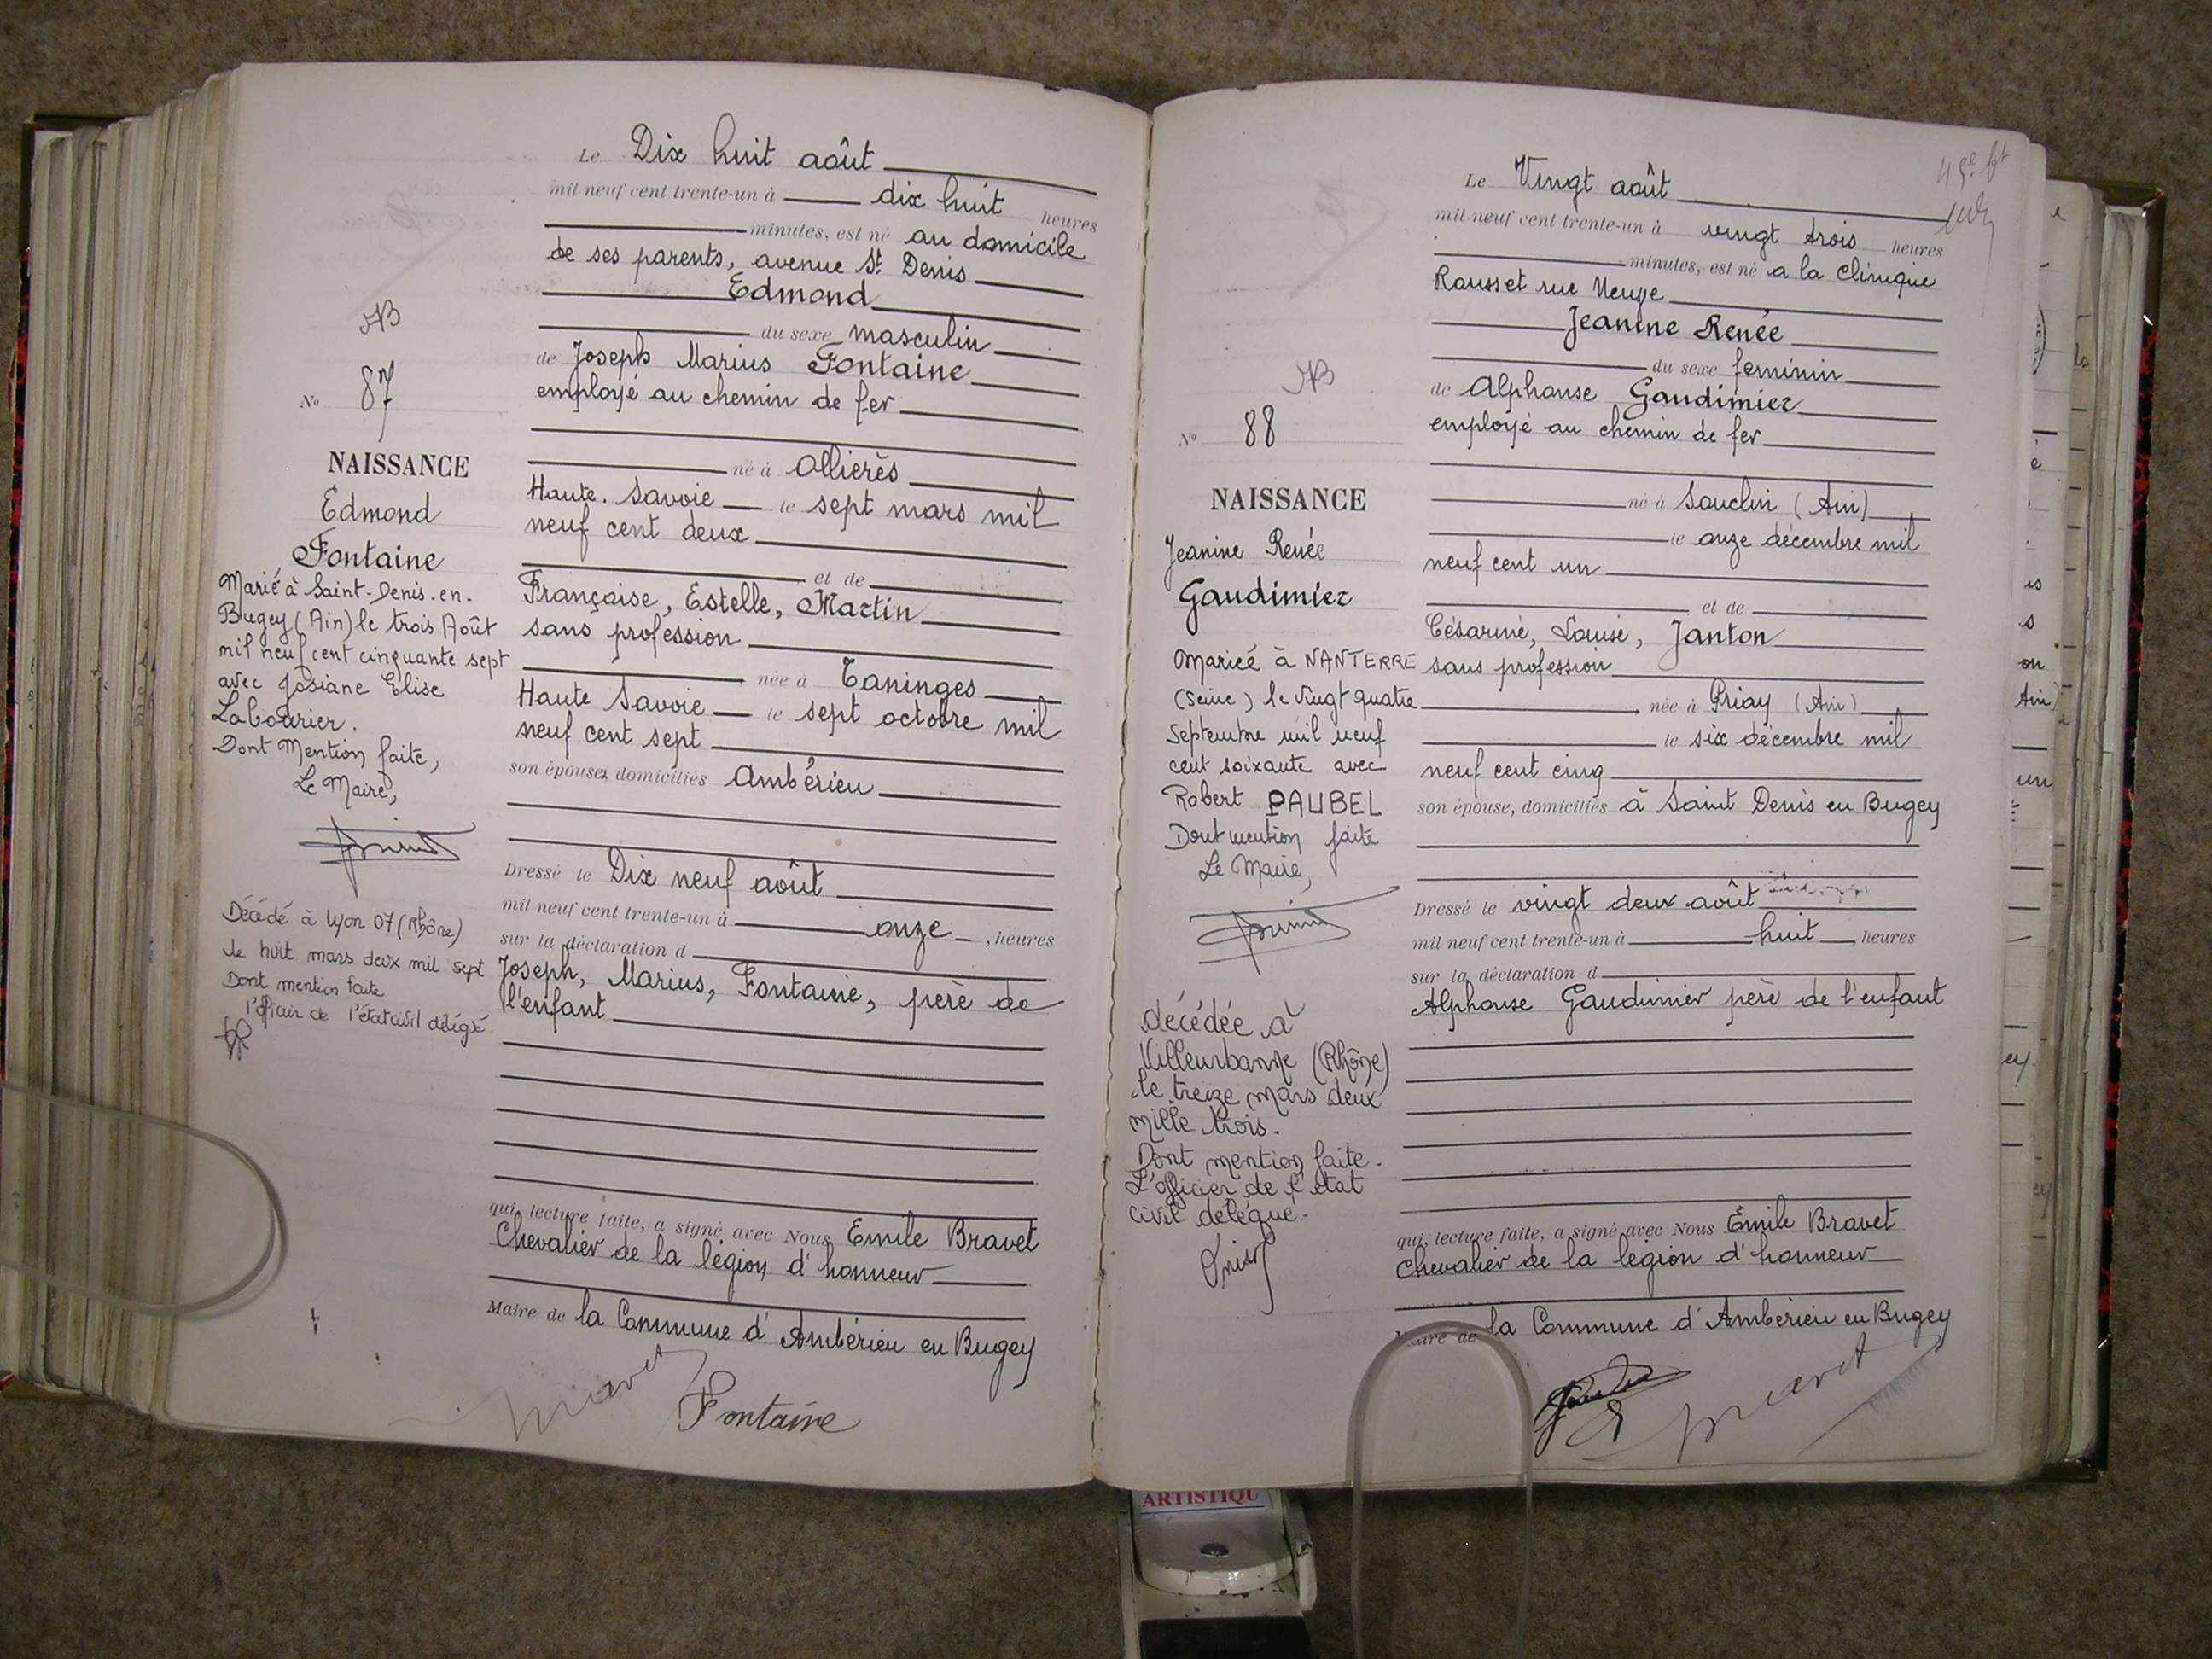 Le Dix huit août
mil neuf cent trente-un à dix huit heures
minutes, est né au domicile
de ses parents, avenue St Denis
Edmond
du sexe masculin
de Joseph Marius Fontaine
employé au chemin de fer
né à Ollierès
Haute. Savoie le sept mars mil
neuf cent deux
et de
Françoise, Estelle, Martin
sans profession
née à Taninges
Haute Savoie le sept octobre mil
neuf cent sept
son épouse, domiciliés Ambérieu
Dressé le Dix neuf août
mil neuf cent trente-un à onze, heures
sur la déclaration d
Joseph, Marius, Fontaine, père de
l'enfant
qui, lecture faite, a signé avec Nous Emile Bravet
Chevalier de la légion d'honneur
Maire de la Commune d'Ambérieu en Bugey
Fontaine
No 87
NAISSANCE
Edmond
Fontaine
Marié à Saint-Denis-en-
Bugey (Ain) le trois Août
mil neuf cent cinquante sept
avec Josiane Elise
Labourier.
Dont Mention faite,
Le Maire,
Décédé à Lyon 07 (Rhône)
le huit mars deux mil sept
Dont mention faite
l'officier de l'état civil délégué
Le Vingt août
mil neuf cent trente-un à vingt trois heures
minutes, est né a la Clinique
Rousset rue Neuve
Jeanine Renée
du sexe feminin
de Alphonse Gaudimier
employé au chemin de fer
né à Souclin (Ain)
le onze décembre mil
neuf cent un
et de
Césarine, Louise, Janton
sans profession
née à Priay (Ain)
le six décembre mil
neuf cent cinq
son épouse, domiciliés à Saint Denis en Bugey
Dressé le vingt deux août
mil neuf cent trente-un à huit, heures
sur la déclaration d
Alphonse Gaudimier père de l'enfant
qui, lecture faite, a signé avec Nous Emile Bravet
Chevalier de la légion d'honneur
Maire de la Commune d'Ambérieu en Bugey
Bravet
No 88
NAISSANCE
Jeanine Renée
Gaudimier
Mariée à NANTERRE
(Seine) le vingt quatre
Septembre mil neuf
cent soixante avec
Robert PAUBEL
Dont mention faite
Le Maire,
décédée à
Villeurbanne (Rhône)
le treize mars deux
mille trois.
Dont mention faite.
L'officier de l'état
civil délégué.
ARTISTIQU